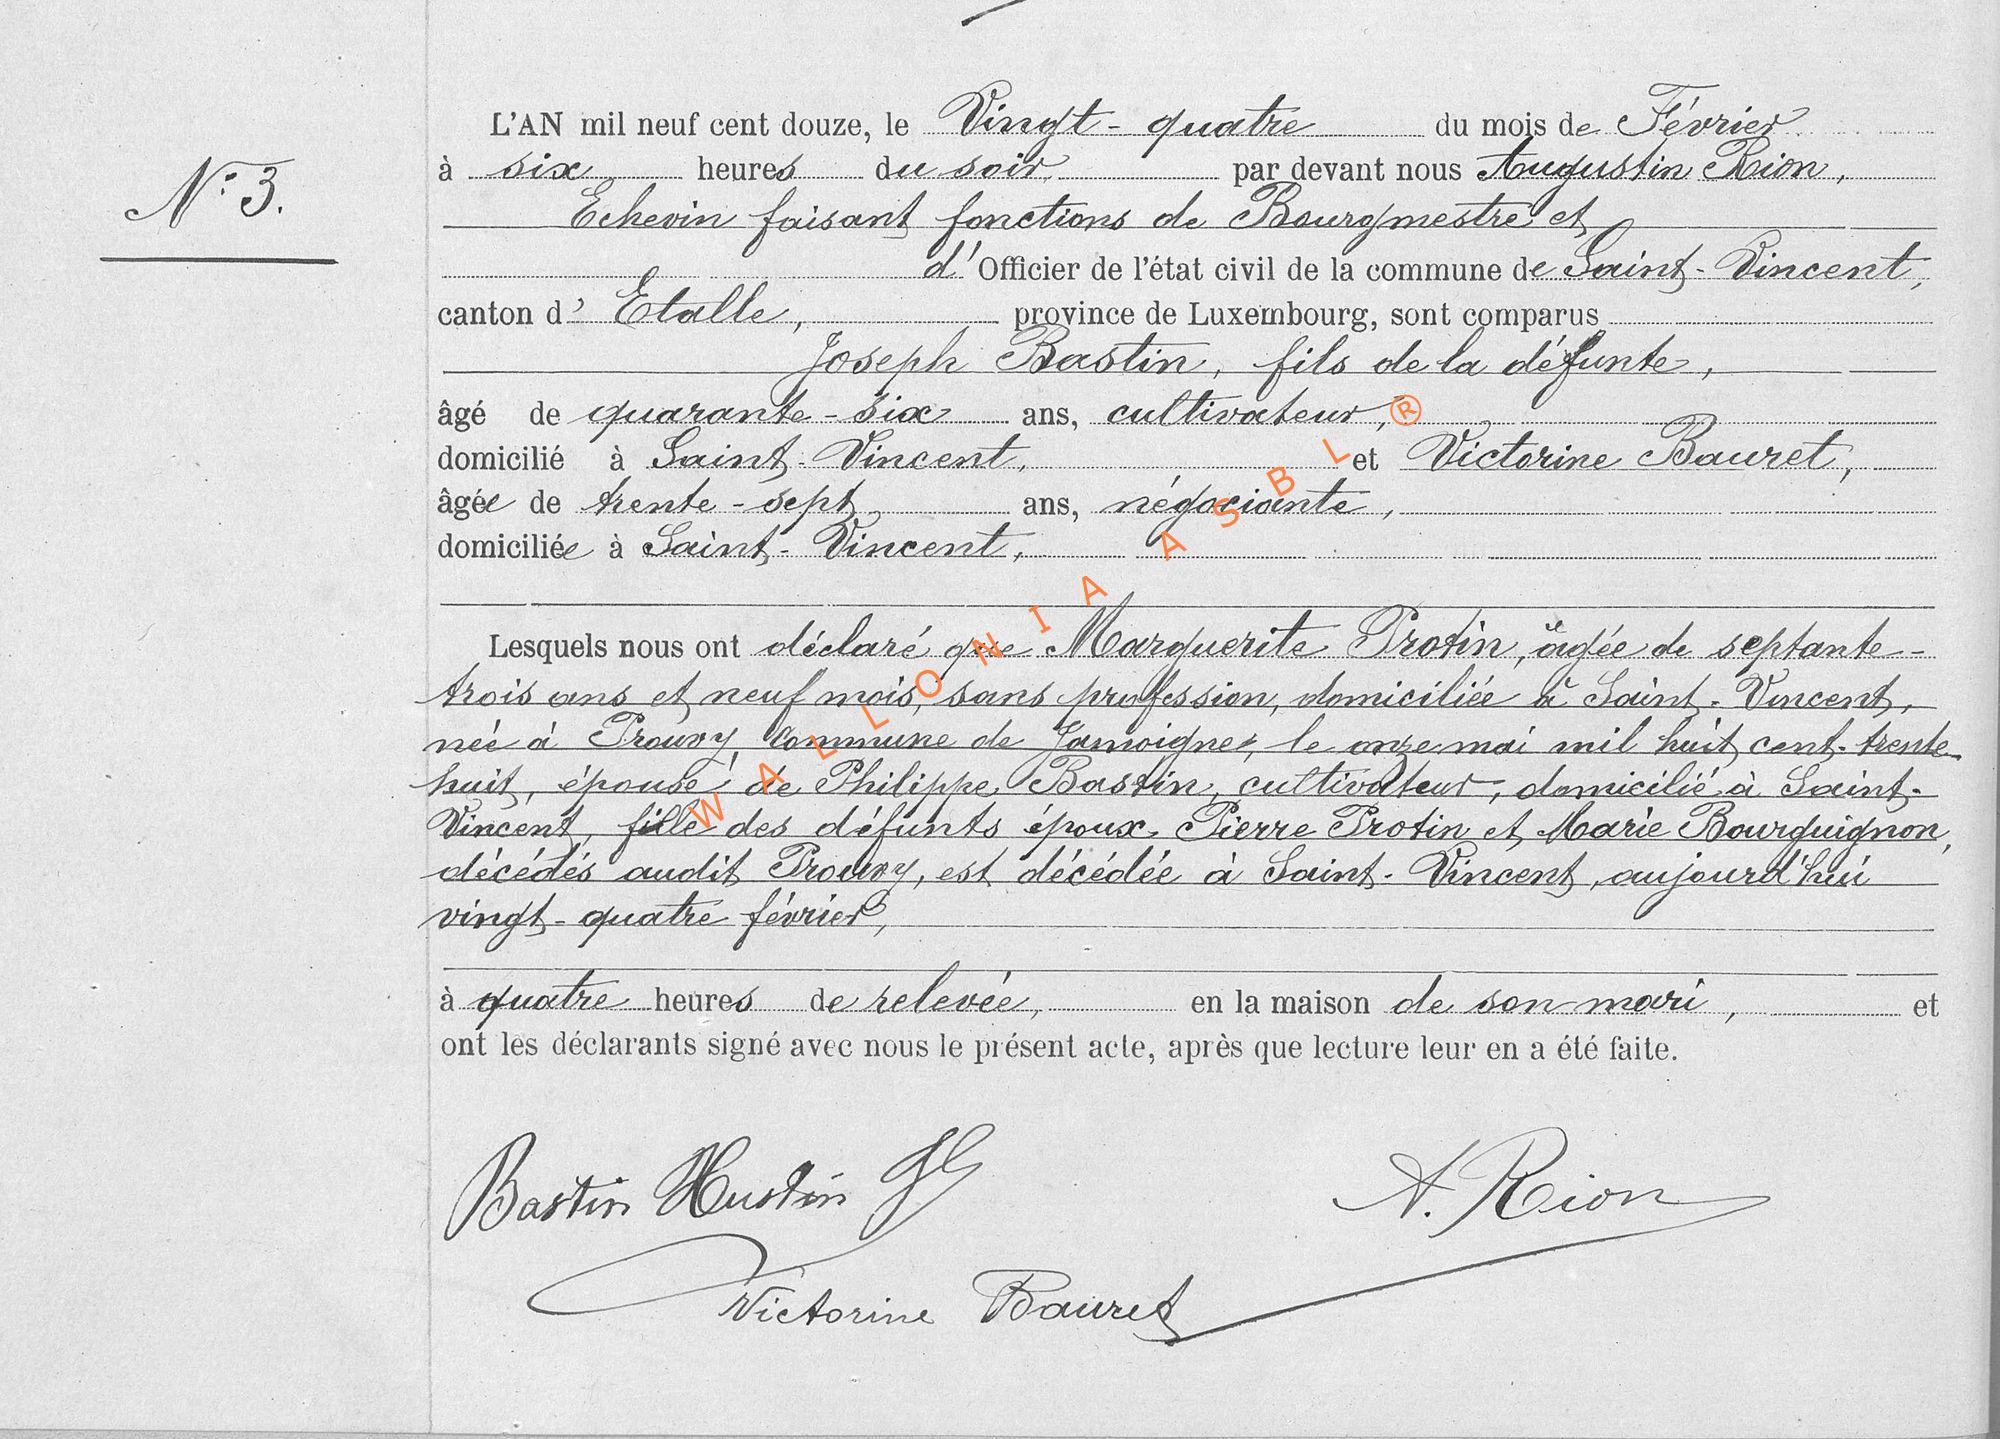 N° 3.
L'AN mil neuf cent douze, le Vingt-quatre du mois de Février
à six heures du soir par devant nous Augustin Rion,
Echevin faisant fonctions de Bourgmestre et
d'Officier de l'état civil de la commune de Saint-Vincent,
canton d'Etalle, province de Luxembourg, sont comparus
Joseph Bastin, fils de la défunte,
âgé de quarante-six ans, cultivateur,
domicilié à Saint-Vincent, et Victorine Bauret,
âgée de trente-sept ans, négociante,
domiciliée à Saint-Vincent,
Lesquels nous ont déclaré que Marguerite Protin, âgée de septante-
trois ans et neuf mois, sans profession, domiciliée à Saint-Vincent,
née à Prouvy, commune de Jamoigne, le onze mai mil huit cent-trente-
huit, épouse de Philippe Bastin, cultivateur, domicilié à Saint-
Vincent, fille des défunts époux Pierre Protin et Marie Bourguignon,
décédés audit Prouvy, est décédée à Saint-Vincent, aujourd'hui
vingt-quatre février,
à quatre heures de relevée, en la maison de son mari, et
ont les déclarants signé avec nous le présent acte, après que lecture leur en a été faite.
Bastin Hustin
A. Rion
Victorine Bauret
WALLONIA ASBL®